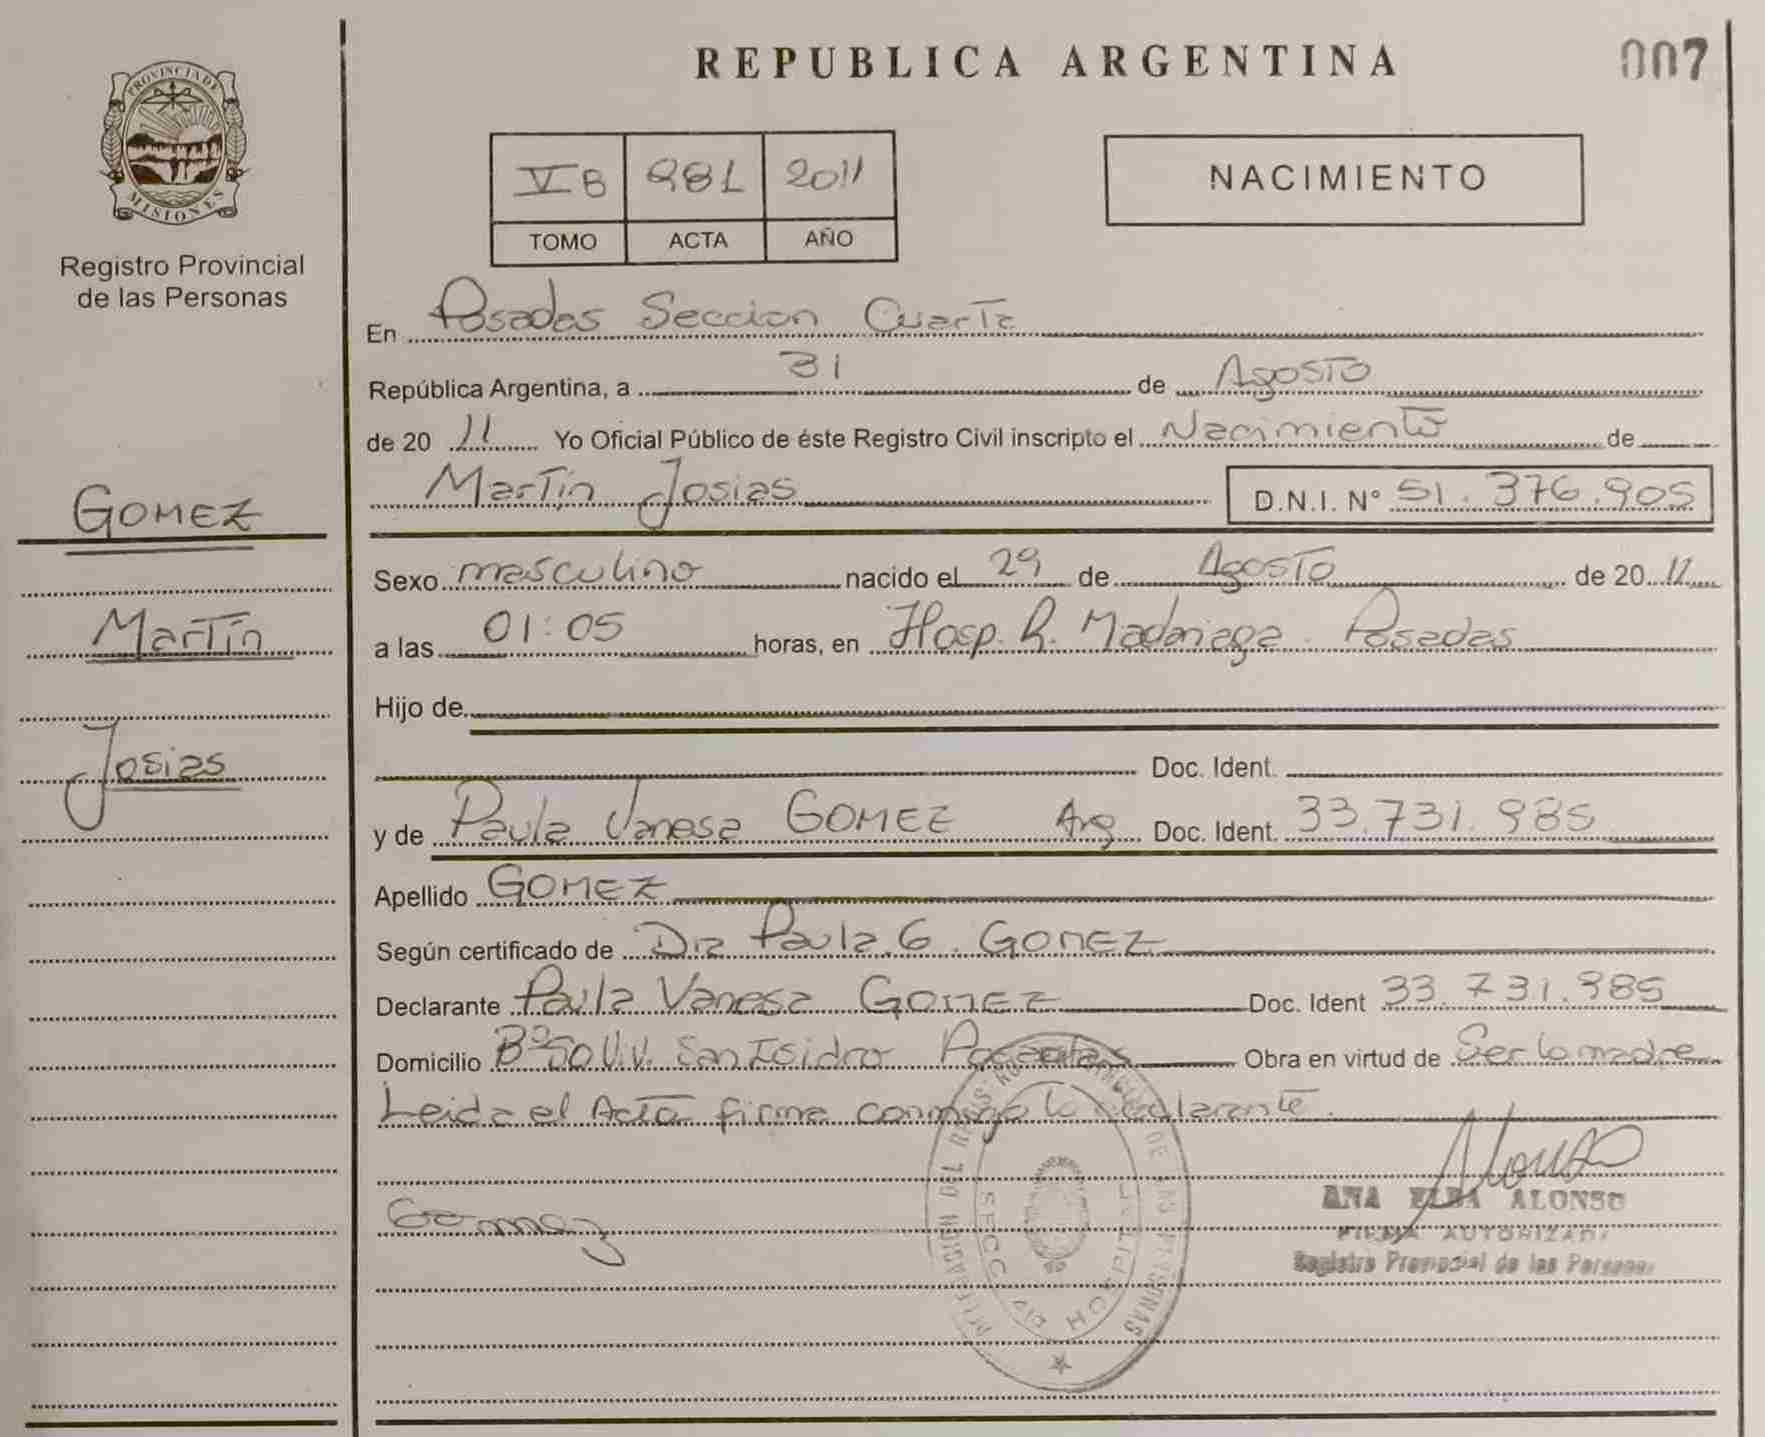 REPUBLICA ARGENTINA
007
PROVINCIA DE
MISIONES
Registro Provincial
de las Personas
VB 981 2011
TOMO ACTA AÑO
NACIMIENTO
En Posadas Seccion Cuarta
República Argentina, a 31 de Agosto
de 2011 Yo Oficial Público de éste Registro Civil inscripto el Nacimiento de
Martín Josias D.N.I. N° 51.376.905
GOMEZ
Martín
Josias
Sexo masculino nacido el 29 de Agosto de 2011
a las 01:05 horas, en Hosp. R. Madariaga. Posadas
Hijo de
Doc. Ident.
y de Paula Vanesa GOMEZ Arg Doc. Ident. 33.731.985
Apellido GOMEZ
Según certificado de Dra Paula G. GOMEZ
Declarante Paula Vanesa GOMEZ Doc. Ident 33.731.985
Domicilio B° 50 V.V. San Isidro Posadas Obra en virtud de Ser la madre
Leida el Acta firma conmigo la declarante.
Alonso
ANA ELBA ALONSO
FIRMA AUTORIZADA
Registro Provincial de las Personas
Gomez
SECC
HOSPITAL